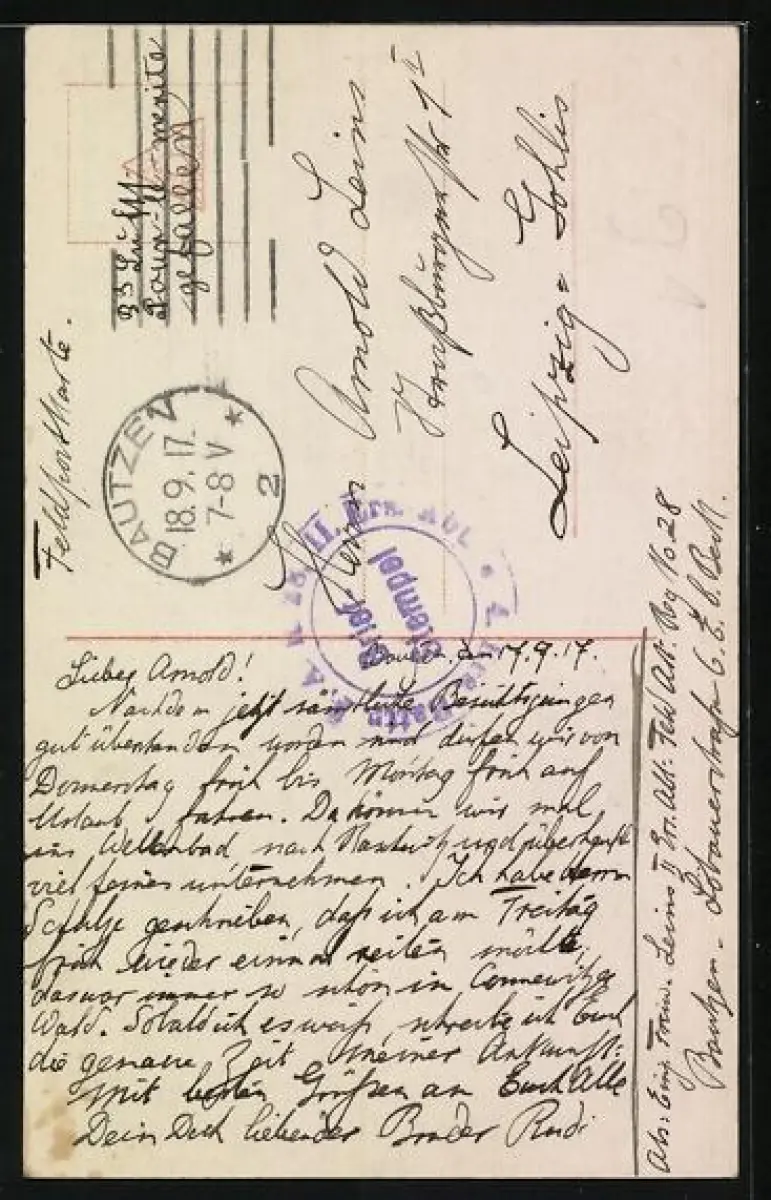 Feldpostkarte.
BAUTZEN
18.9.17.
7-8 V
* 2 *
gefallen
Herrn Arnold Leins
Leipzig = Gohlis
II. Ers. Abt.
Brief
stempel
Bautzen, den 17.9.17.
Lieber Arnold!
Nachdem jetzt sämtliche Besichtigungen
gut überstanden worden sind dürfen wir von
Donnerstag früh bis Montag früh auf
Urlaub fahren. Da können wir mal
ins Wellenbad nach und überhaupt
viel feines unternehmen. Ich habe Herrn
Schulze geschrieben, daß ich am Freitag
früh wieder einmal reiten möchte,
das war immer so schön im Connewitzer
Wald. Sobald ich es weiß, schreibe ich Euch
die genaue Zeit meiner Ankunft.
Mit besten Grüßen an Euch Alle
Dein Dich liebender Bruder Rudi
Abs: Einj. Freiw. Leins II Ers. Abt: Feld Art: Reg No 28
Bautzen - Löbauerstraße 6. E. b.